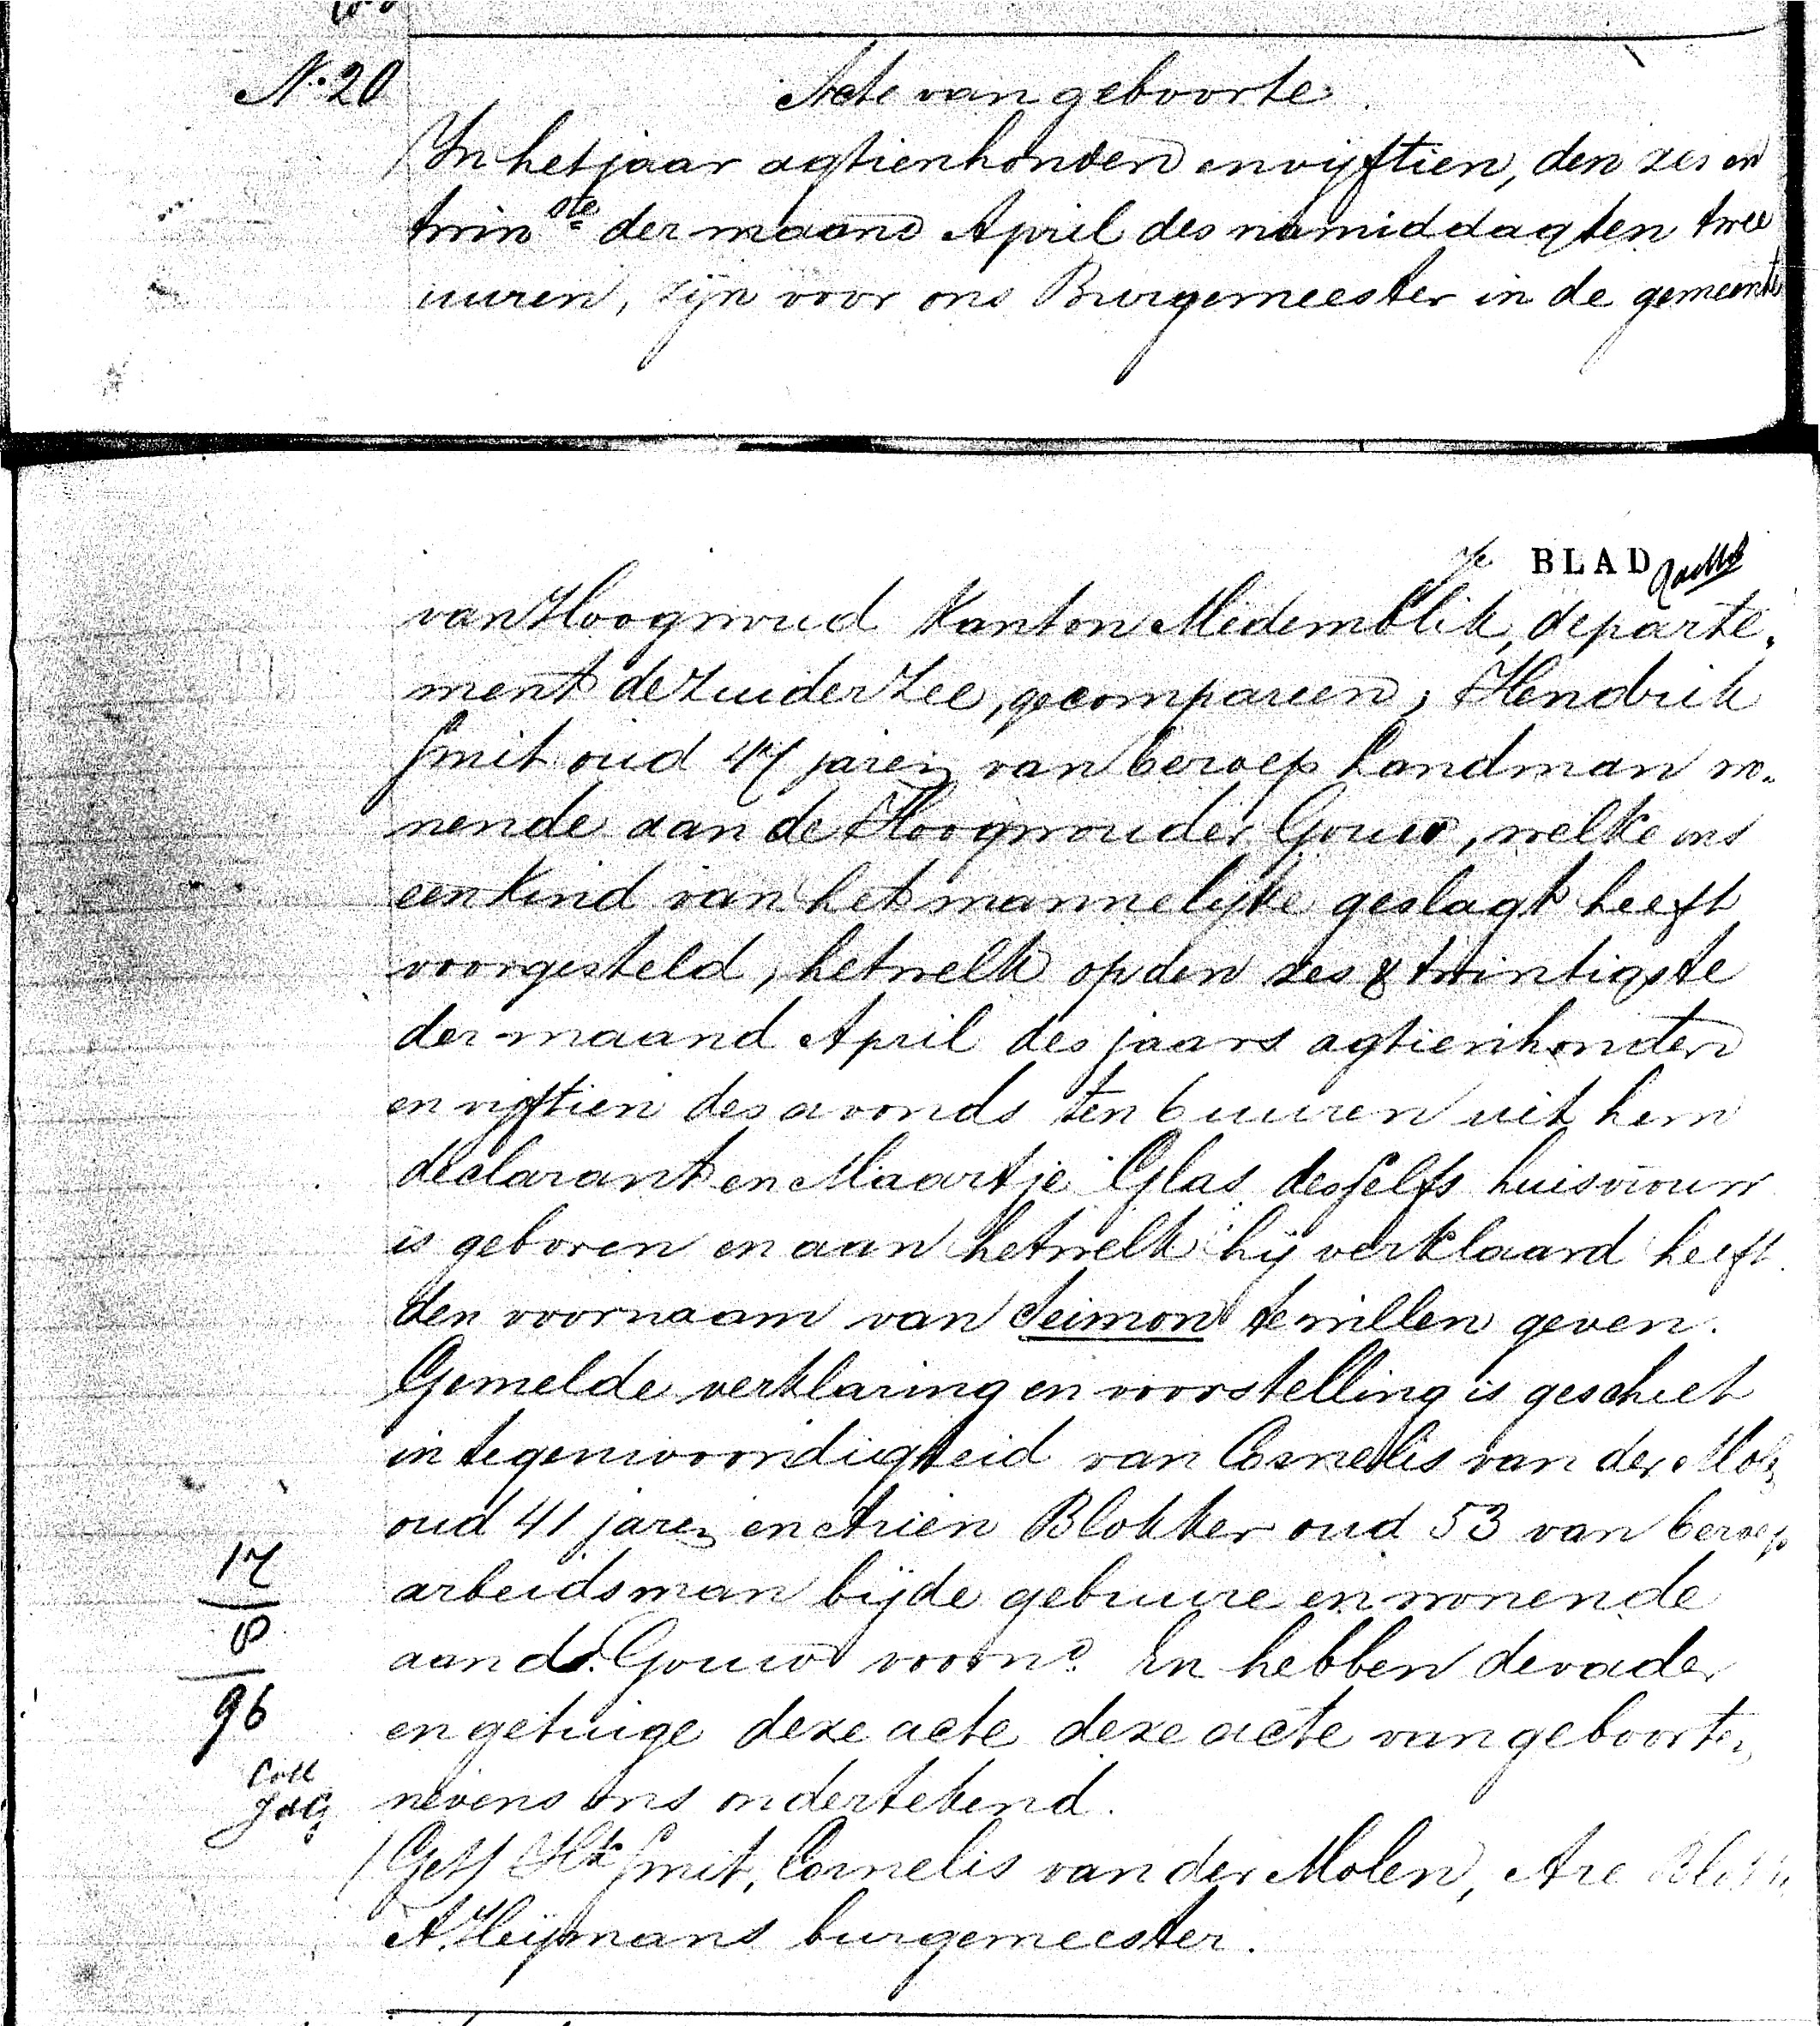 N.º 20
Acte van geboorte.
In het jaar agtienhonderd en vijftien, den zes en
twinste der maand April des namiddag ten twee
uuren, zijn voor ons Burgemeester in de gemeente
7e BLAD
van Hoogwoud Kanton Medemblik, departe-
ment de Zuider Zee, gecompareerd, Hendrik
Smit oud 47 jaren van beroep Landman wo-
nende aan de Hoogwouder Gouw, welke ons
een kind van het mannelijke geslagt heeft
voorgesteld, hetwelk op den zes & twintigste
der maand April des jaars agtienhonderd
en vijftien des avonds ten 6 uuren uit hem
declarant en Maartje Glas desselfs huisvrouw
is geboren en aan hetwelk hij verklaard heeft
den voornaam van Seimon te willen geven.
Gemelde verklaring en voorstelling is geschiet
in tegenwoordigheid van Cornelis van der Molen
oud 41 jaren en Arien Blokker oud 53 van beroep
arbeidsman bijde gebuure en wonende
aan de Gouw voornd. En hebben de vader
en getuige deze acte deze acte van geboorte
nevens ons ondertekend.
(Get) Hk Smit, Cornelis van der Molen, Are
A. Heijmans burgemeester.
17
8
96
Coll